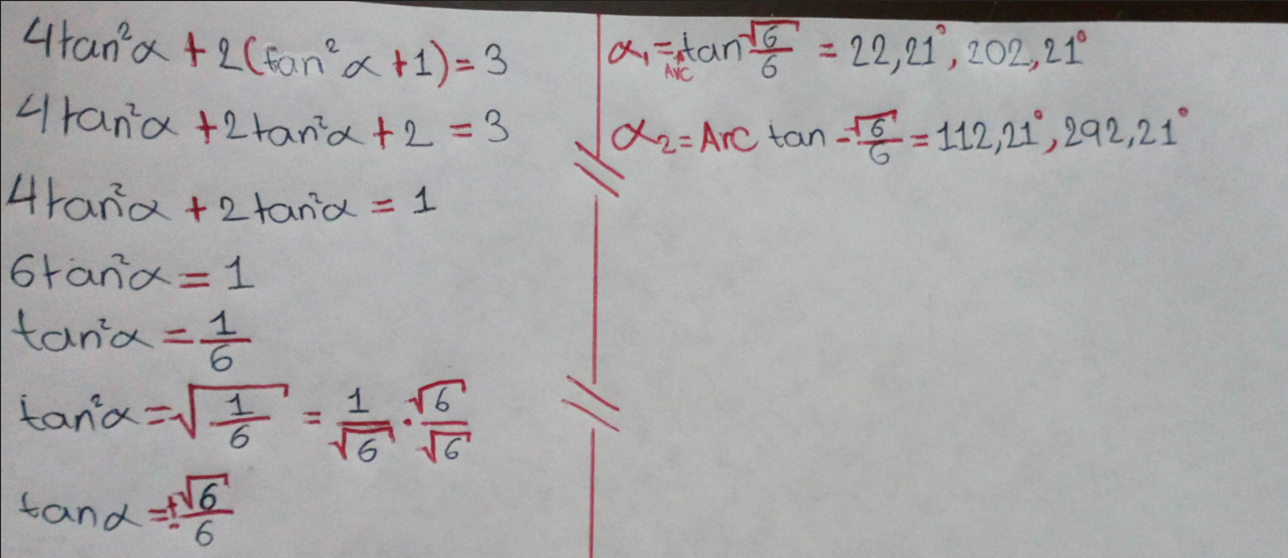 4tan²α + 2(tan²α + 1) = 3
4tan²α + 2tan²α + 2 = 3
4tan²α + 2tan²α = 1
6tan²α = 1
tan²α = 1/6
tan²α = √(1/6) = 1/√6 · √6/√6
tanα = ±√6/6
α₁ = Arc tan √6/6 = 22,21°, 202,21°
α₂ = Arc tan -√6/6 = 112,21°, 292,21°